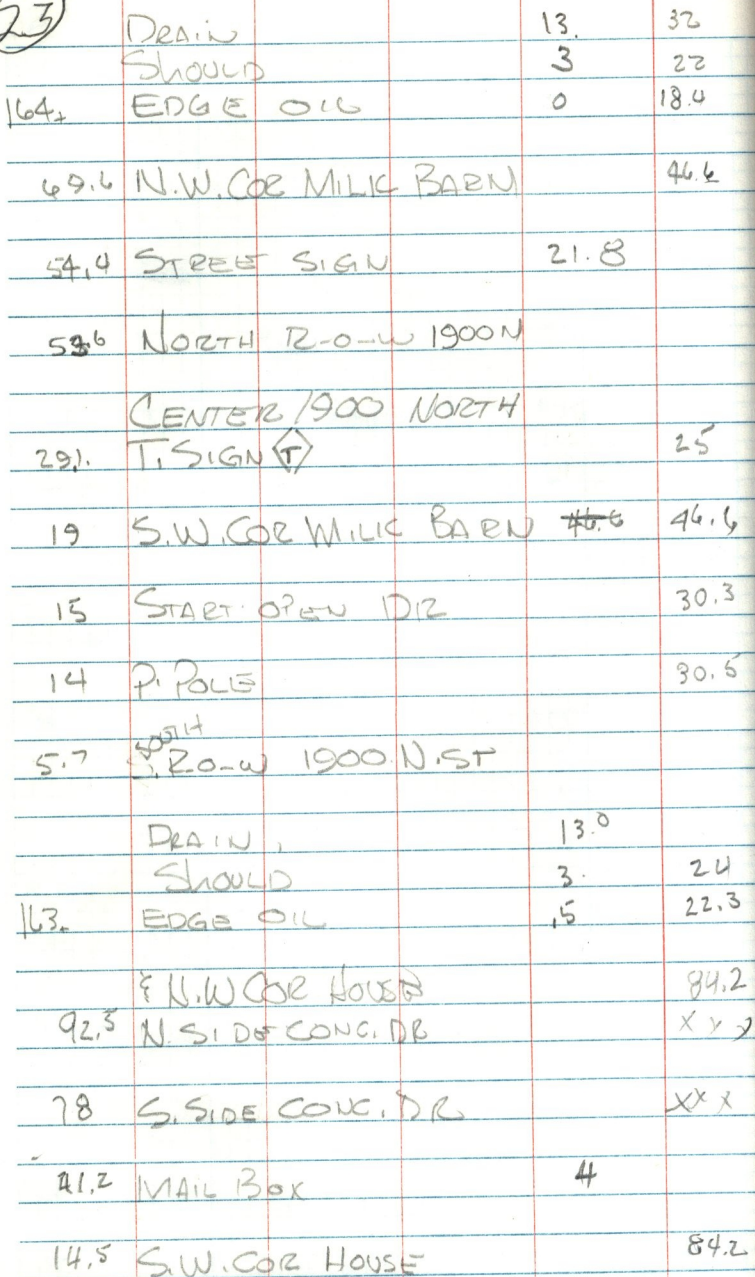 23
DRAIN 13. 32
SHOULD 3 22
164+ EDGE OIL 0 18.4
69.6 N.W. COR MILK BARN 46.6
54.4 STREET SIGN 21.8
NORTH R-O-W 1900 N
CENTER 1900 NORTH
29.1. T. SIGN T 25
19 S.W. COR MILK BARN 46.6 46.6
15 START OPEN DR 30.3
14 P. POLE 30.5
SOUTH
5.7 R-O-W 1900 N. ST
DRAIN, 13.0
SHOULD 3. 24
163+ EDGE OIL .5 22.3
& N.W COR HOUSE 84.2
92.5 N. SIDE CONC. DR X X X
78 S. SIDE CONC. DR XXX
41.2 MAIL BOX 4
14.5 S.W. COR HOUSE 84.2